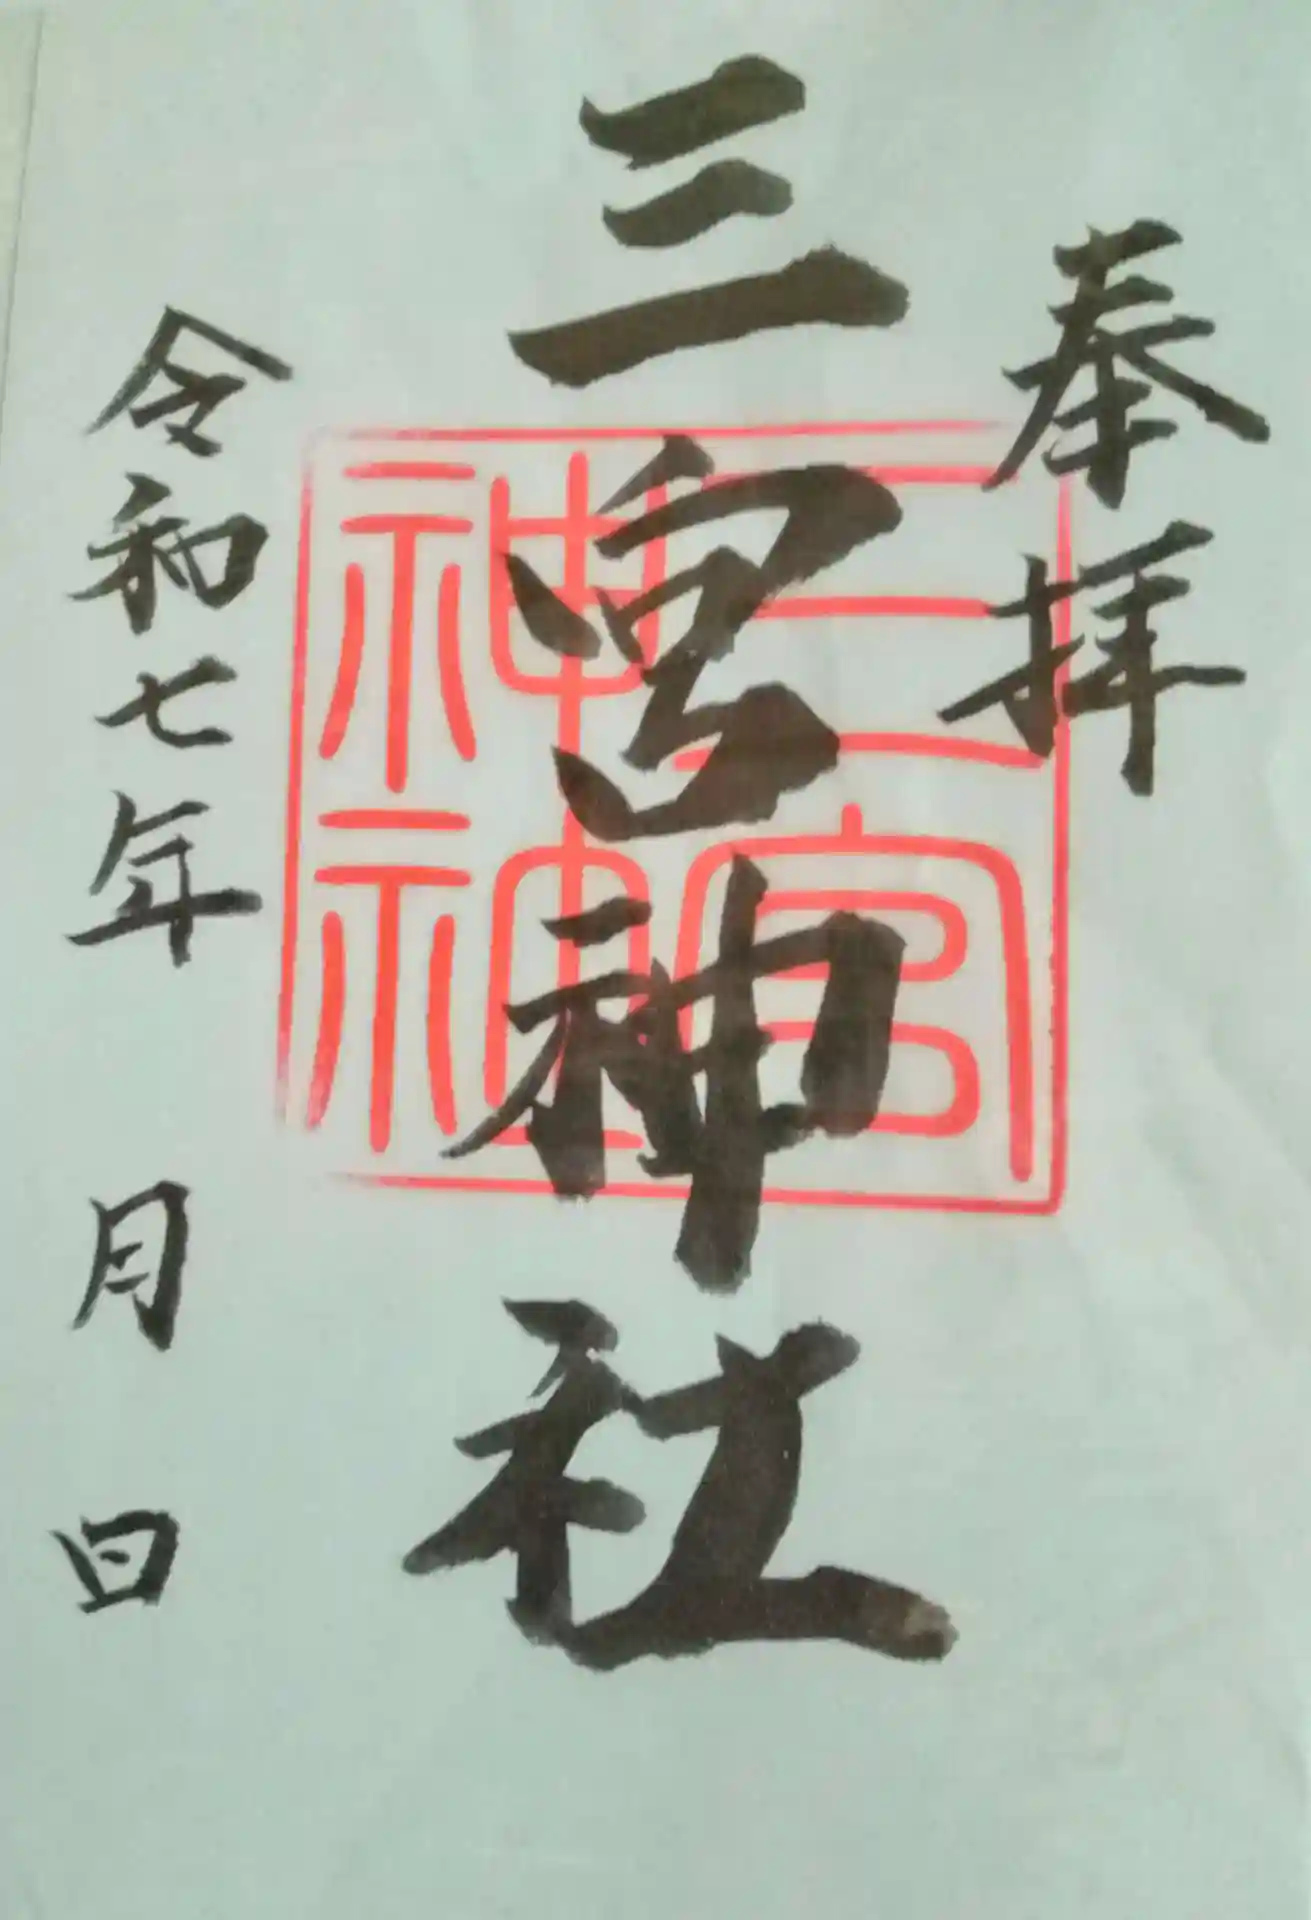 奉拝
三宮神社
令和七年 月 日
三宮
神社